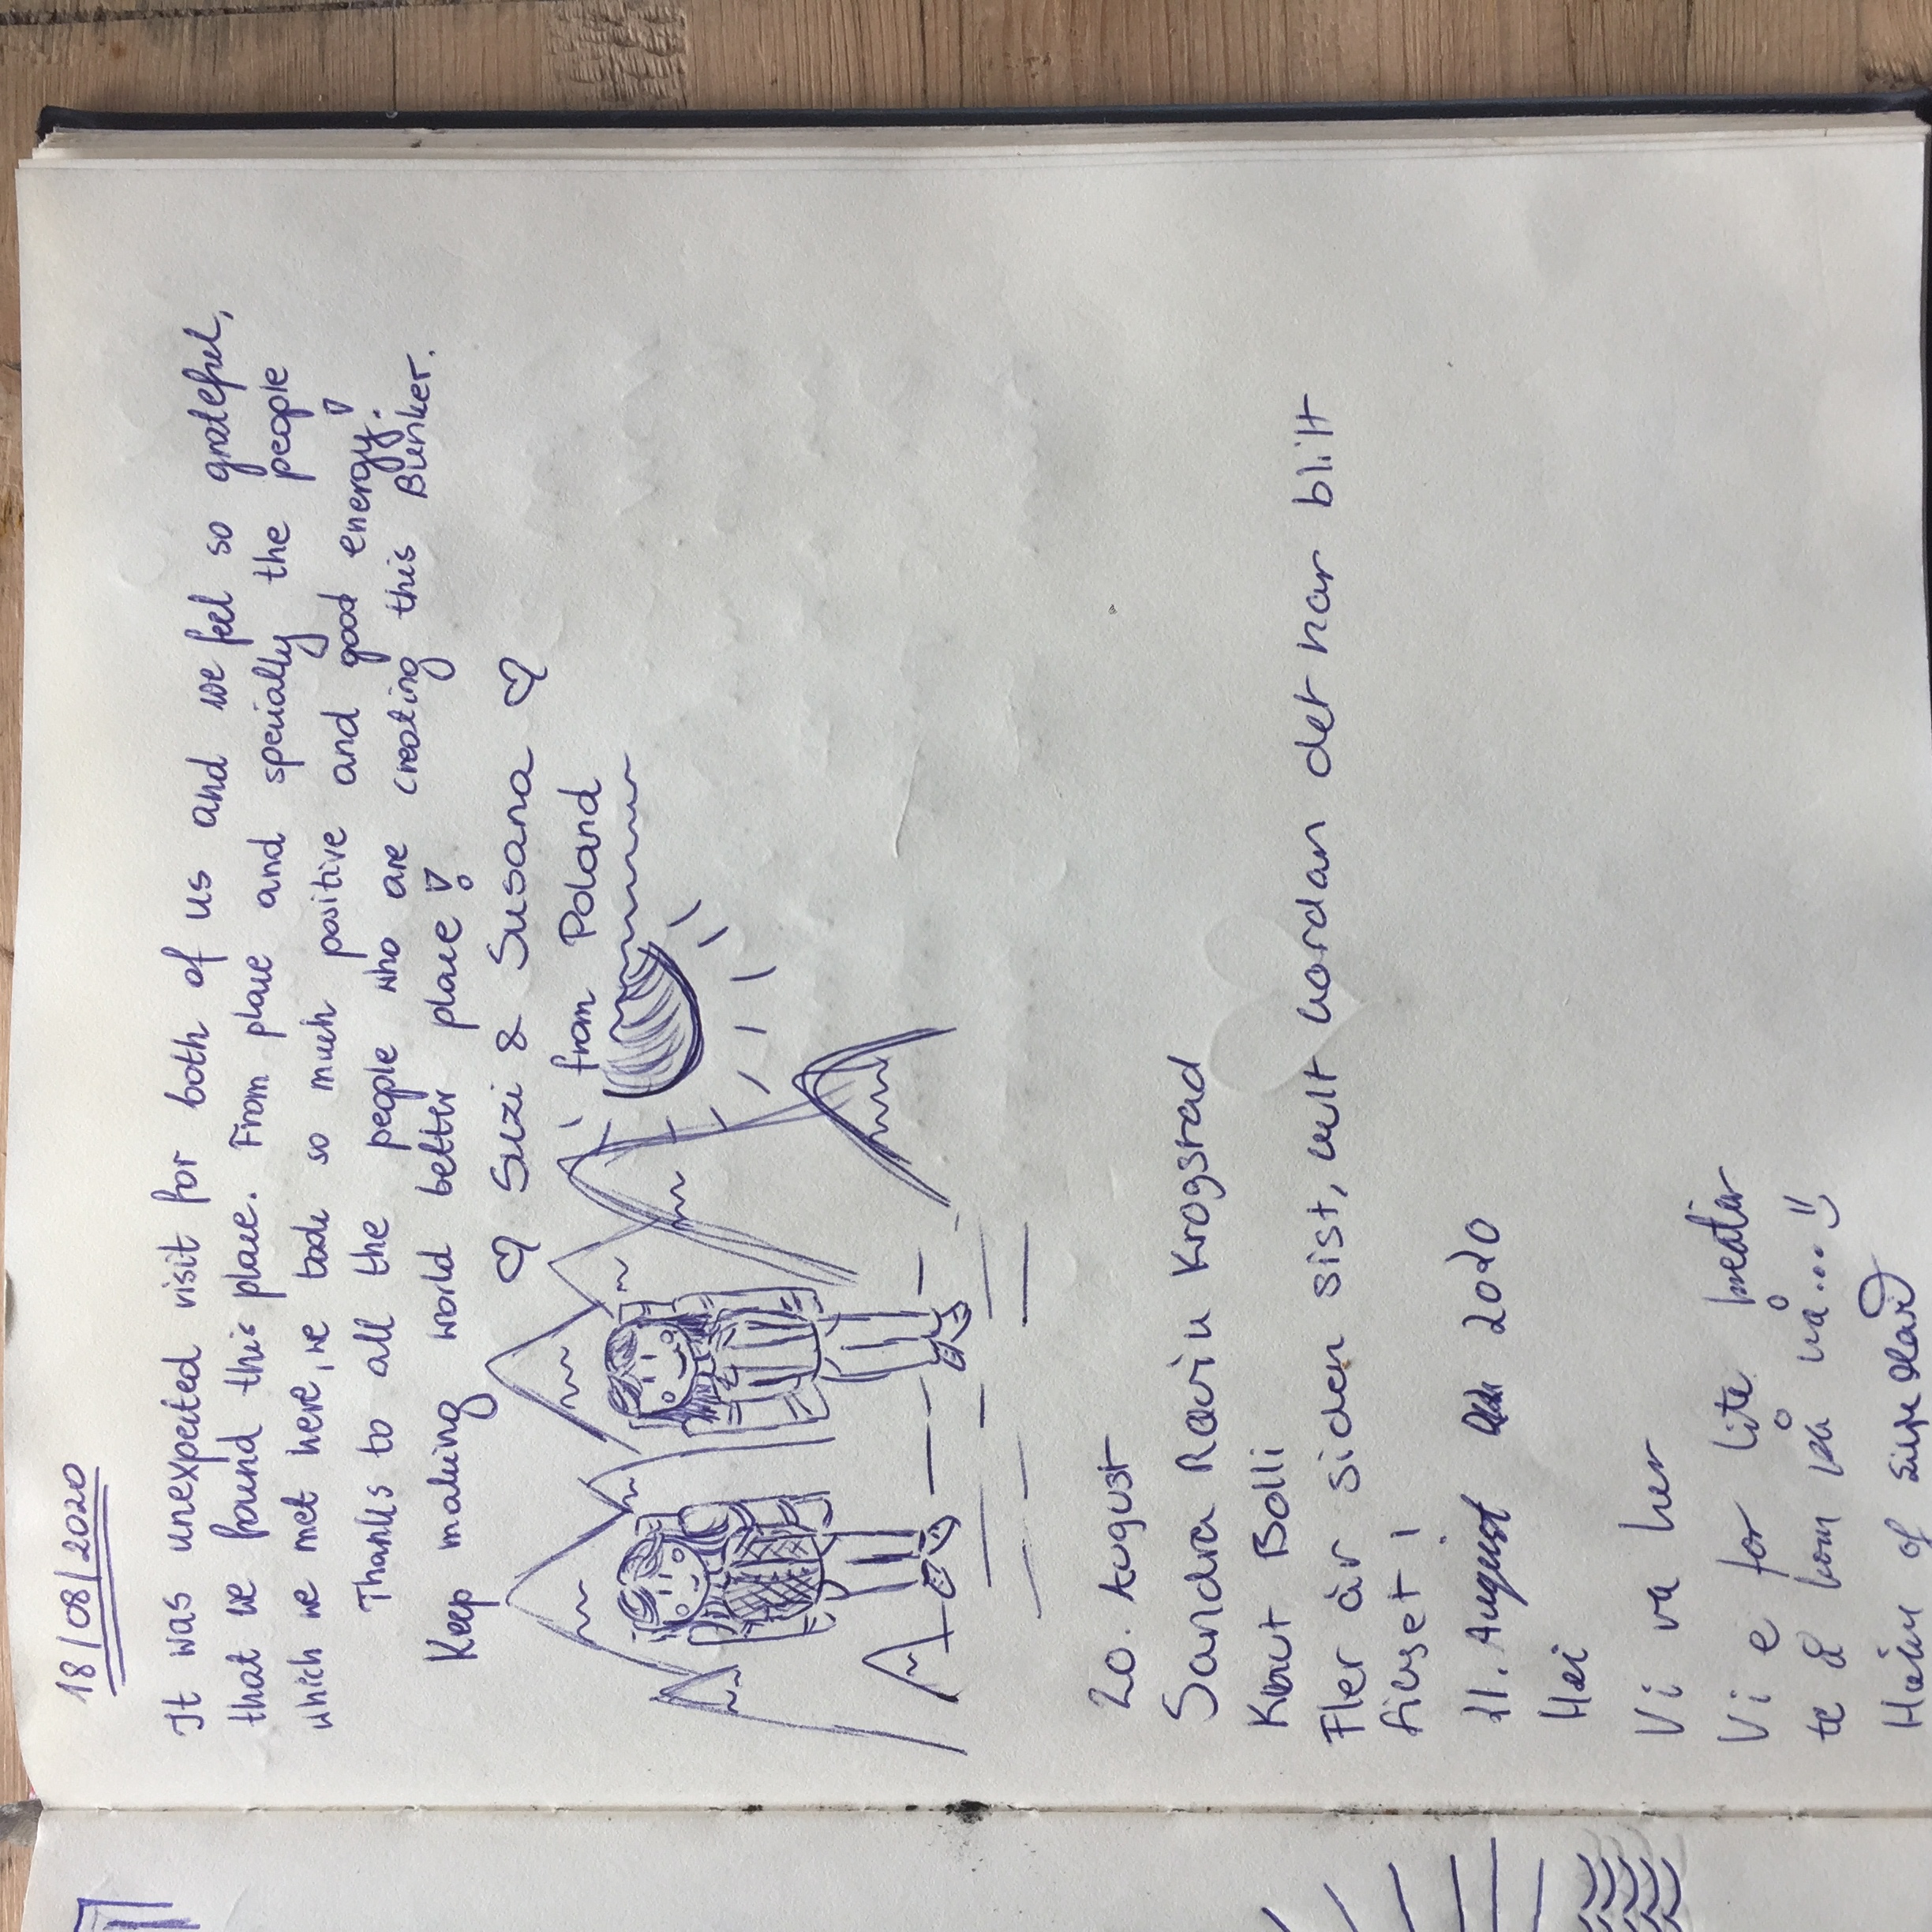 18/08/2020
It was unexpected visit for both of us and we feel so grateful,
that we found this place. From place and specially the people
which we met here, we took so much positive and good energy!
Thanks to all the people who are creating this Bunker.
Keep making world better place!
♡ Suzi & Susana ♡
from Poland
20. August
Sandra Ravin Krogstad
Knut Bolli
Fler år siden sist, kult hordan det har blitt
fikset!
21. August 2020
Hei
Vi va her
Vi e for lite kreativ
te å kom på nå....
Heim og